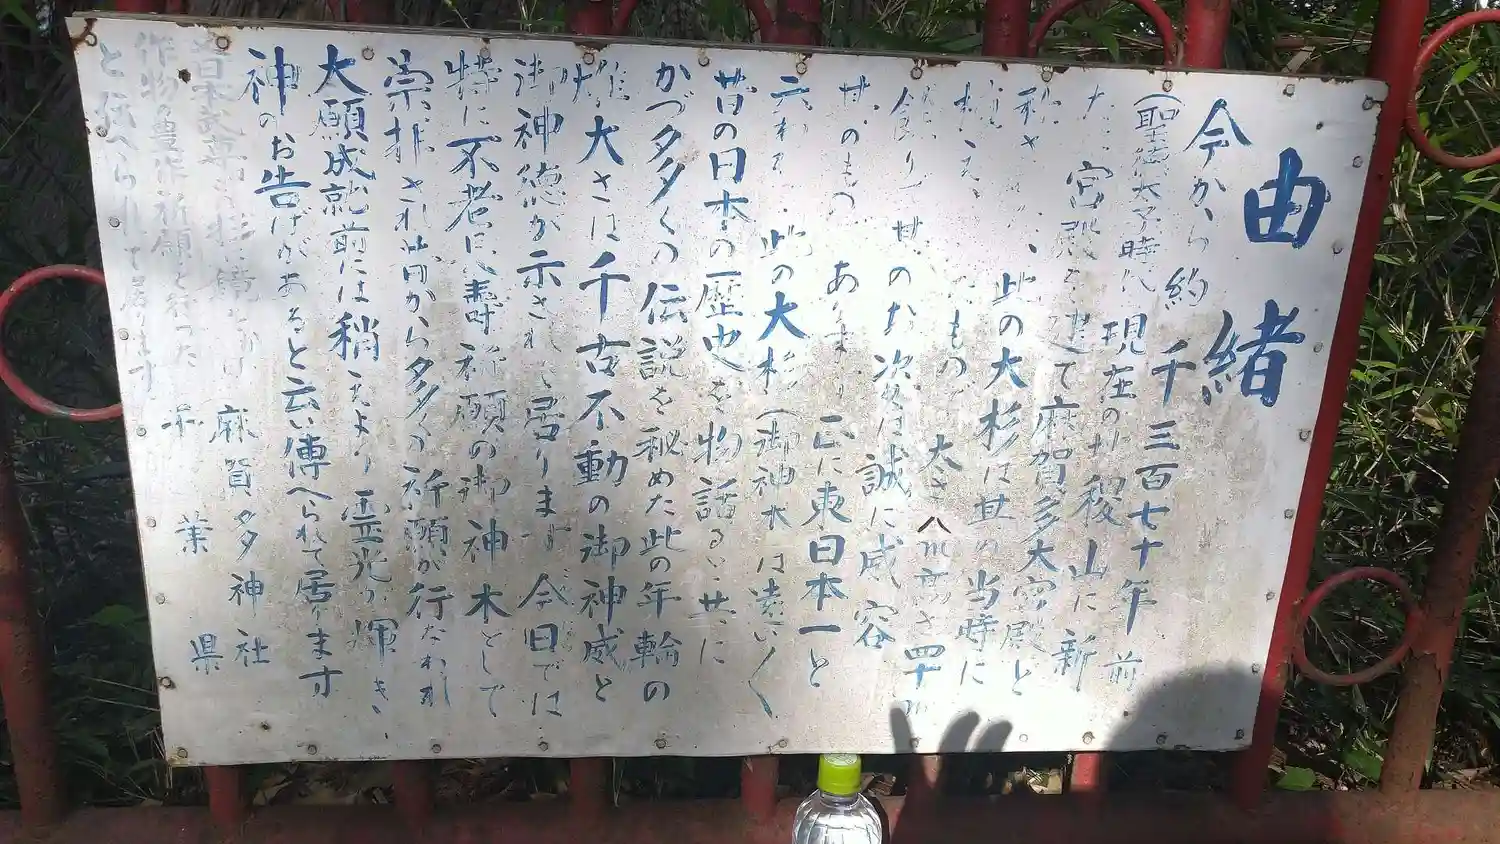 由緒
今から約千三百七十年前
(聖徳太子時代 現在の 稷山に新
宮殿を建て麻賀多大宮殿と
、此の大杉は其の当時に
もので 太さ八m高さ四十m
其のお次を 誠に威容
其のもの あります 正に東日本一と
云われ 此の大杉(御神木は遠いく
昔の日本の歴史を物語る 共に
かづ多くの伝説を秘めた此の年輪の
雄大さは千古不動の御神威と
御神徳が示されて居ります 今日では
特に不老長寿祈願の御神木として
崇拝され 昔から多くの祈願が行なわれ
大願成就前には稍 えより霊光が輝き
神のお告げがあると云い傳へられて居ります
昔日本武尊 杉に鏡をかけ
作物の豊作祈願を行った
と伝へられて居ります
麻賀多神社
千葉県